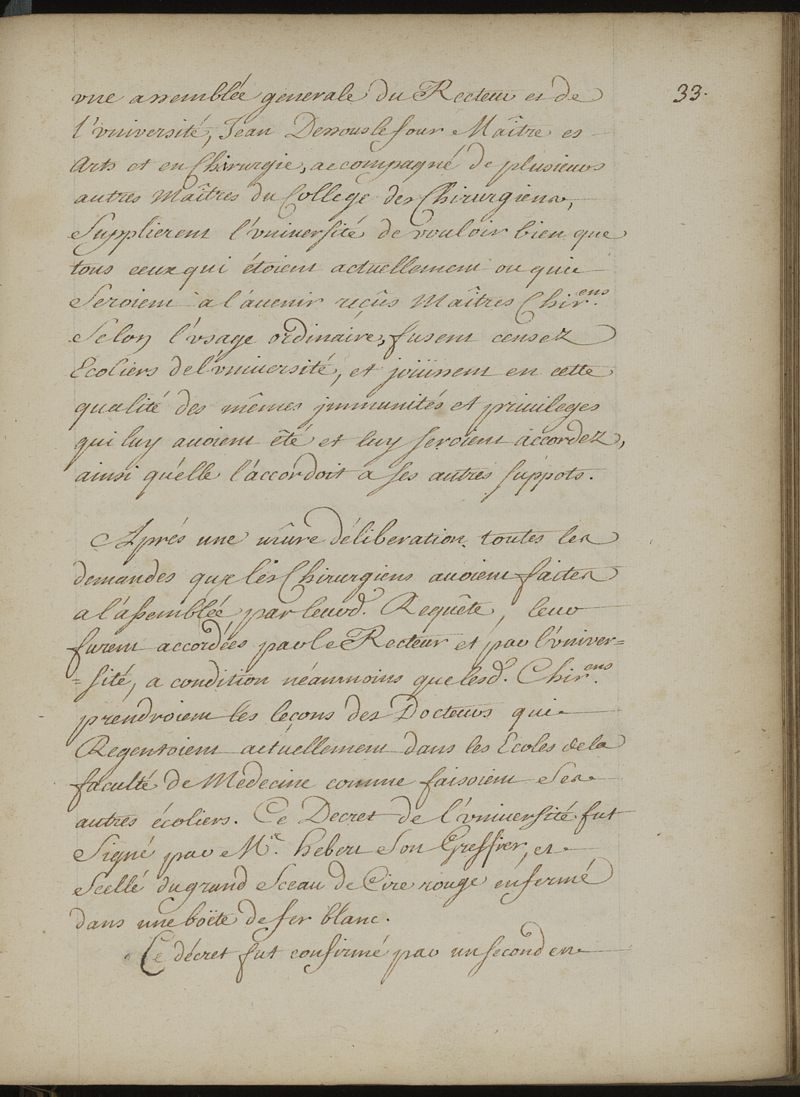 33.
vne assemblée generale du Recteur et de
l'vniversité, Jean Dessouslefour Maître es
Arts et en Chirurgie, accompagné de plusieurs
autres Maîtres du College des Chirurgiens,
Supplierent l'vniversité de vouloir bien que
tous ceux qui étoient actuellement ou qui
seroient a l'auenir reçûs Maîtres Chir.ens
Selon l'vsage ordinaire, fusent censez
Ecoliers de l'vniuersité, et joüissent en cette
qualité des mêmes jmmunités et priuileges
qui luy auoient été et luy seroient accordez,
ainsi qu'elle l'accordoit a ses autres suppots.
Aprés une mûre déliberation toutes les
demandes que les Chirurgiens auoient faites
a l'assemblée par leurd. Requête, leur
furent accordées par le Recteur et par l'vniver=
=sité, a condition néaumoins que lesd. Chir.ens
prendroient les leçons des Docteurs qui
Regentoient actuellement dans les Ecoles de la
faculté de Medecine comme faisoient ses
autres écoliers. Ce Decret de l'vniuersité fut
Signé par Me. hebert Son Greffier, et
Scellé du grand Sceau de Cire rouge enfermé
dans une boëte de fer blanc.
Ce décret fut confirmé par un second en